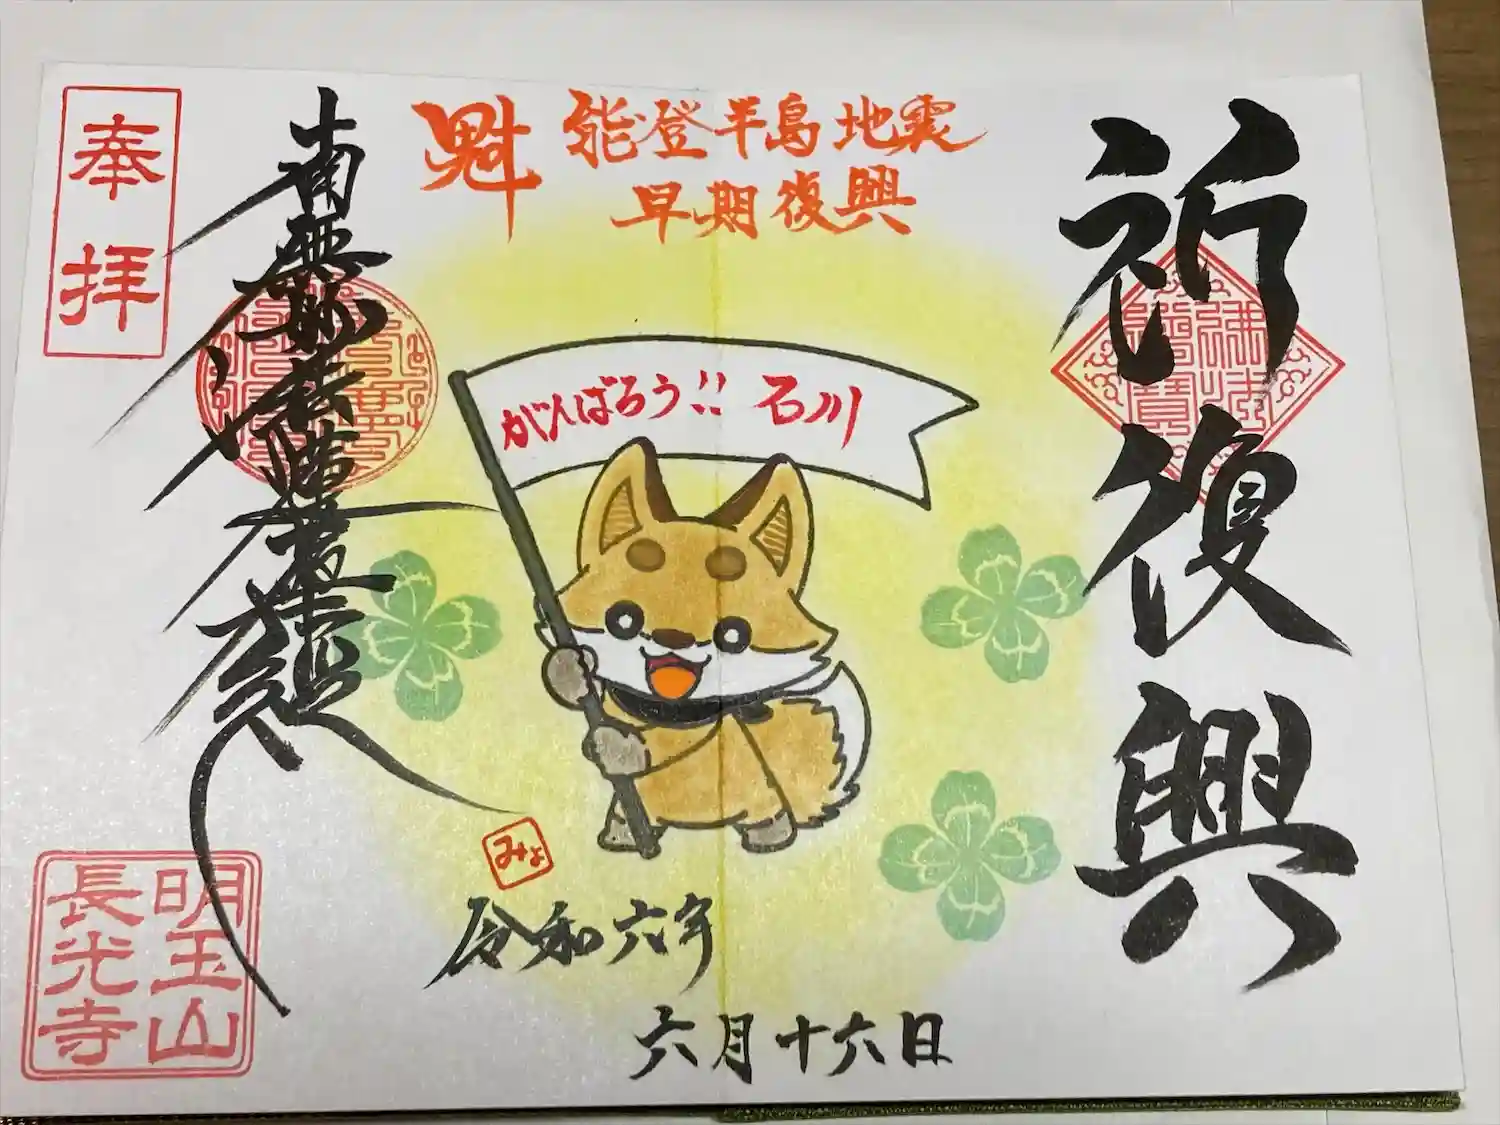 祈復興
魁
能登半島地震
早期復興
がんばろう!! 石川
奉拝
南無妙法蓮華経
みょ
令和六年
六月十六日
明玉山
長光寺